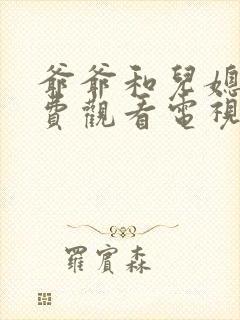 爺爺和兒媳
費觀看電視
羅賓森